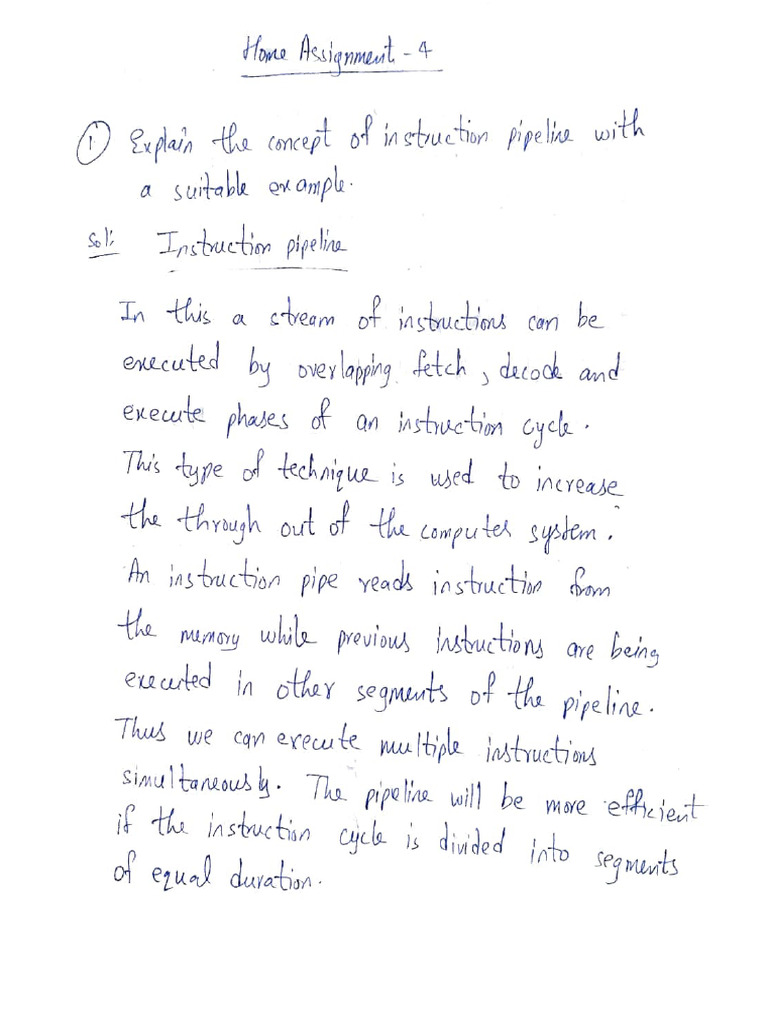 Home Assignment - 4
① Explain the concept of instruction pipeline with
a suitable example.
Sol: Instruction pipeline
In this a stream of instructions can be
executed by overlapping fetch, decode and
execute phases of an instruction cycle.
This type of technique is used to increase
the through out of the computer system.
An instruction pipe reads instruction from
the memory while previous instructions are being
executed in other segments of the pipeline.
Thus we can execute multiple instructions
simultaneously. The pipeline will be more efficient
if the instruction cycle is divided into segments
of equal duration.